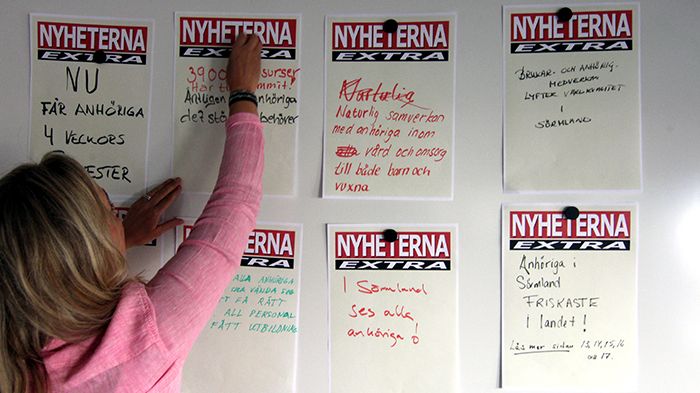 NYHETERNA
EXTRA
NU
FÅR ANHÖRIGA
4 VECKORS
NYHETERNA
EXTRA
3900
Har
Äntligen anhöriga
det behöver
NYHETERNA
EXTRA
Naturlig
Naturlig samverkan
med anhöriga inom
vård och omsorg
till både barn och
vuxna
NYHETERNA
EXTRA
BRUKAR- OCH ANHÖRIG-
MEDVERKAN
LYFTER VÅRDKVALITET
I
SÖRMLAND
NYHETERNA
EXTRA
ALLA ANHÖRIGA
VÄNDA SIG
FÅ RÄTT
ALL PERSONAL
FÅTT UTBILDNING
NYHETERNA
EXTRA
I Sörmland
ses alla
anhöriga!
NYHETERNA
EXTRA
Anhöriga i
Sörmland
FRISKASTE
i landet!
Läs mer sidan 13, 14, 15, 16
och 17.